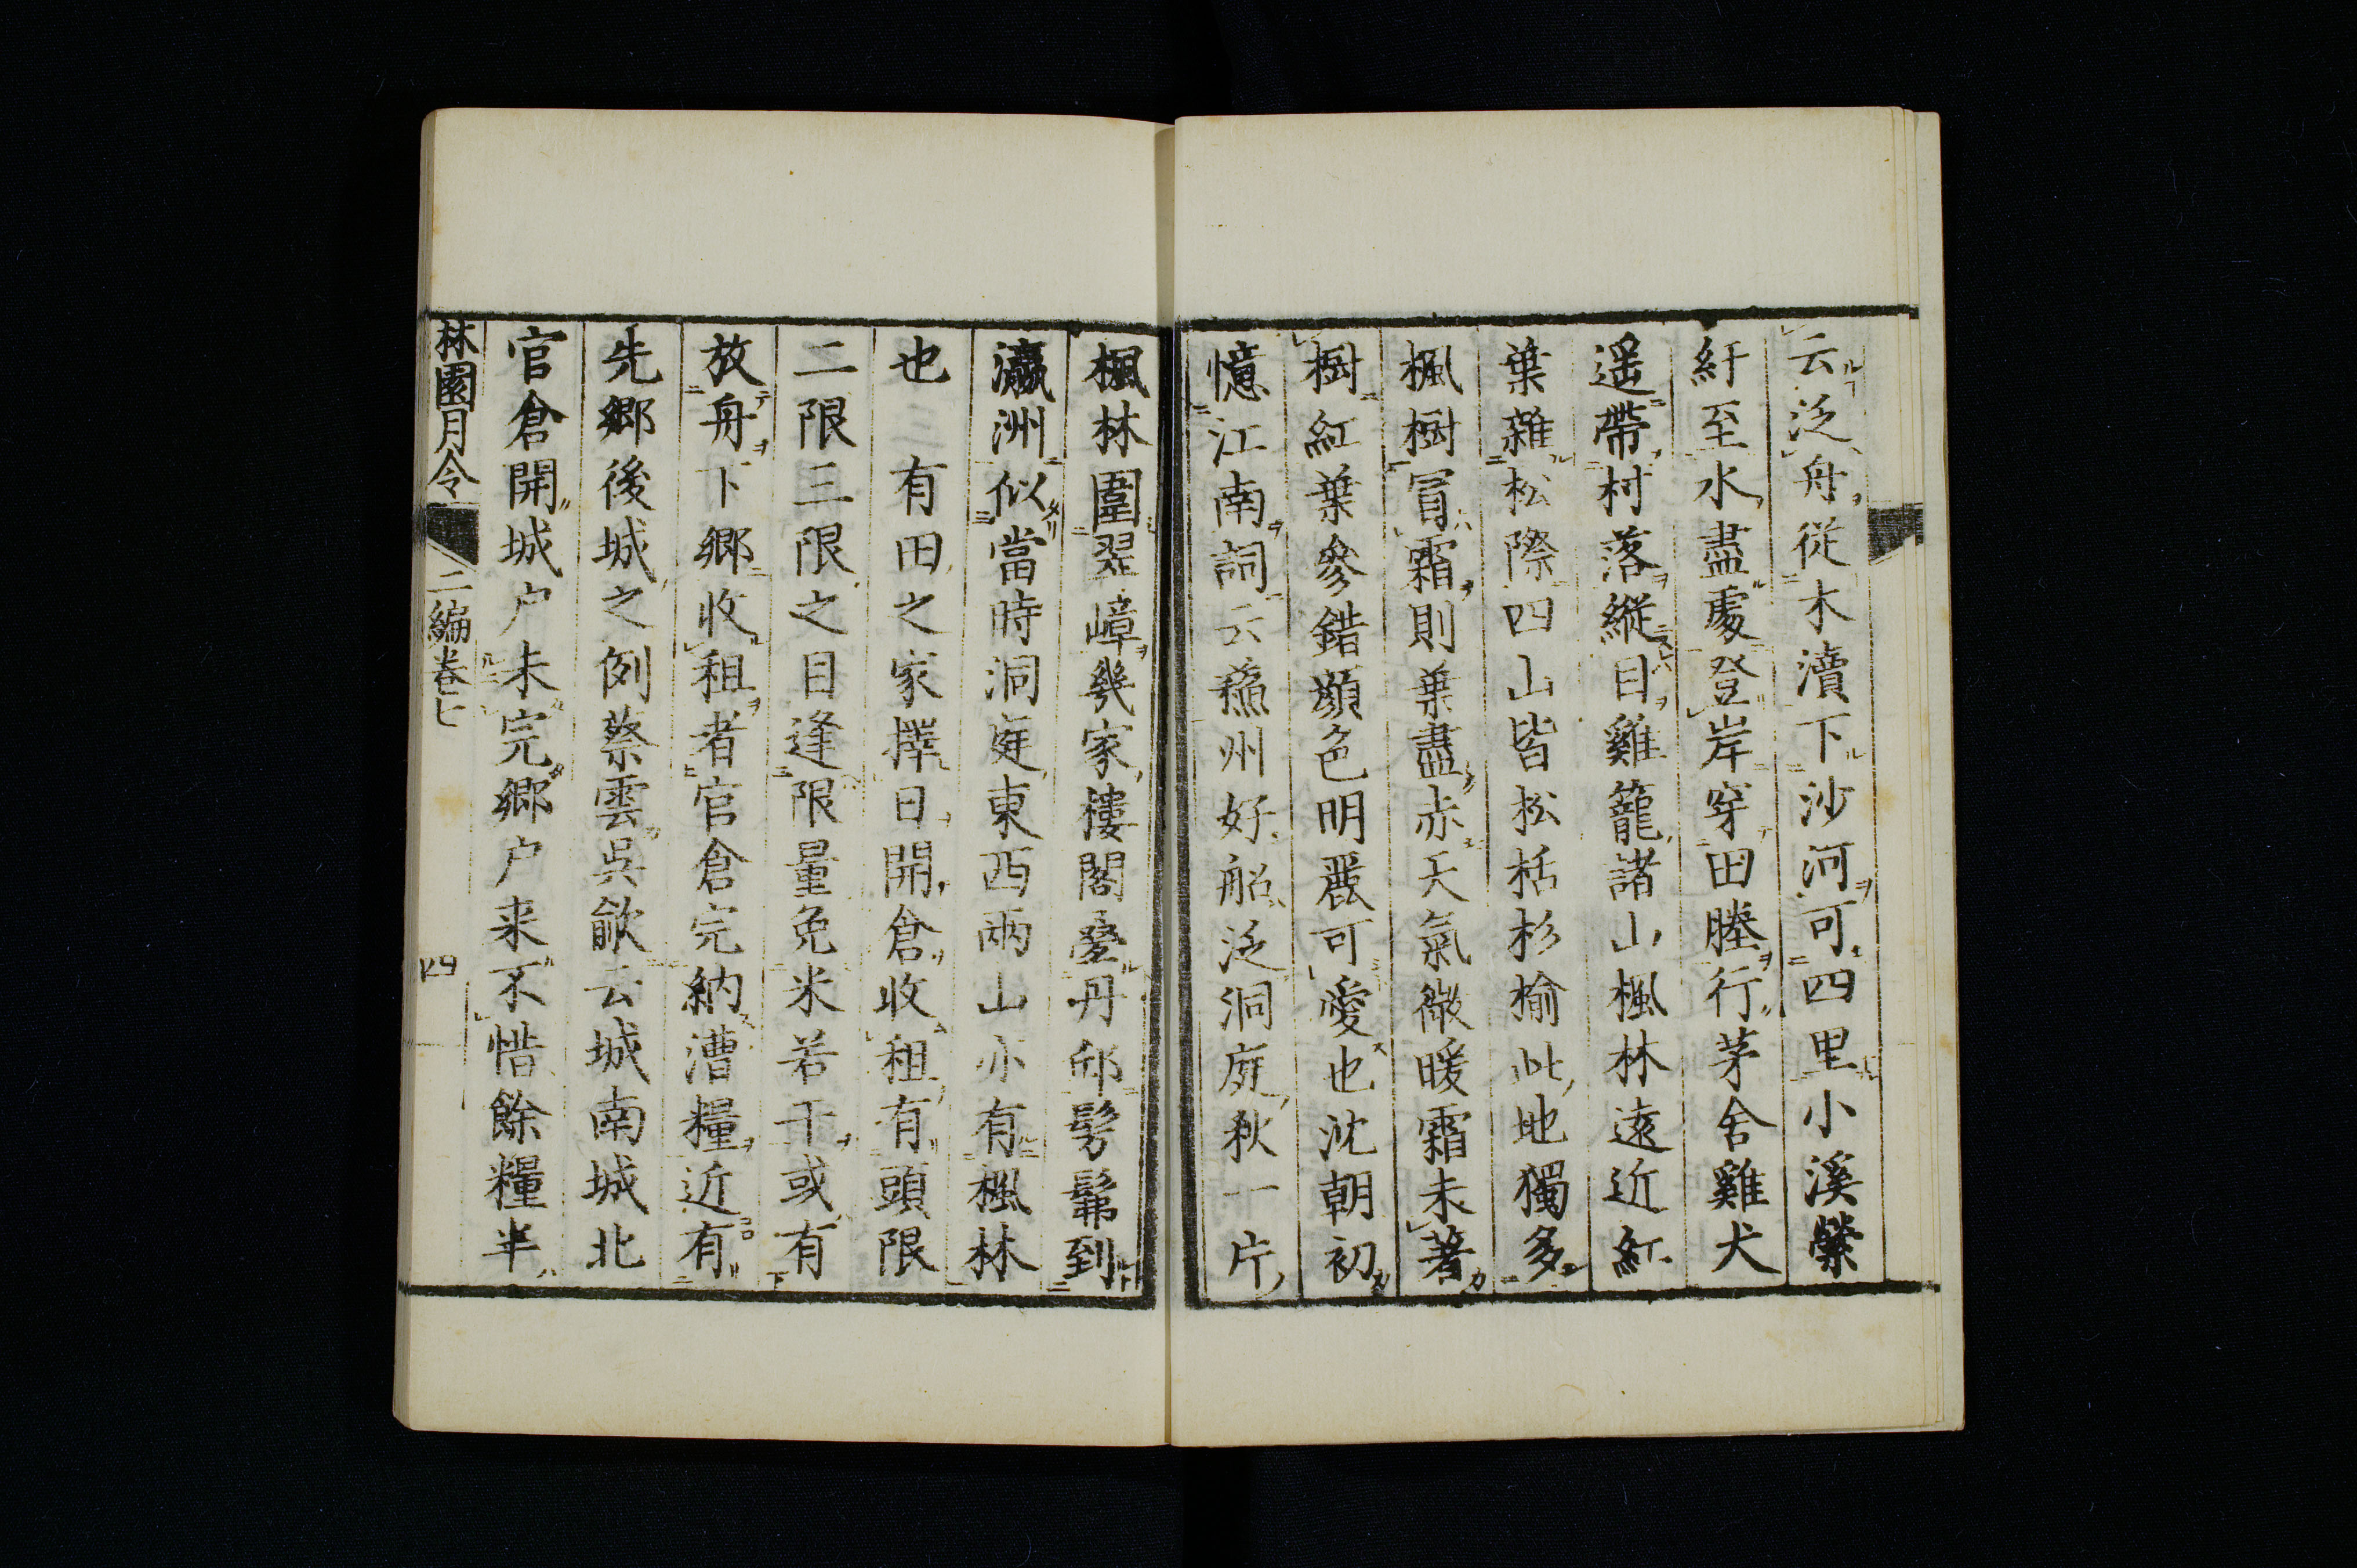 云泛舟從木瀆下沙河可四里小溪縈
紆至水盡處登岸穿田塍行茅舍雞犬
遥帶村落縱目雞籠諸山楓林遠近紅
葉雜松際四山皆松栝杉榆此地獨多
楓樹冐霜則葉盡赤天氣微暖霜未著
樹紅葉參錯顏色明麗可愛也沈朝初
憶江南詞云蘇州好船泛洞庭秋一片
楓林圍翠嶂幾家樓閣疊丹邱髣髴到
瀛洲似當時洞庭東西兩山亦有楓林
也　有田之家擇日開倉收租有頭限
二限三限之目逢限量免米若干或有
放舟下鄉收租者官倉完納漕糧近有
先鄉後城之例蔡雲呉歈云城南城北
官倉開城户未完鄉户来不惜餘糧半
林園月令　二編卷七　四